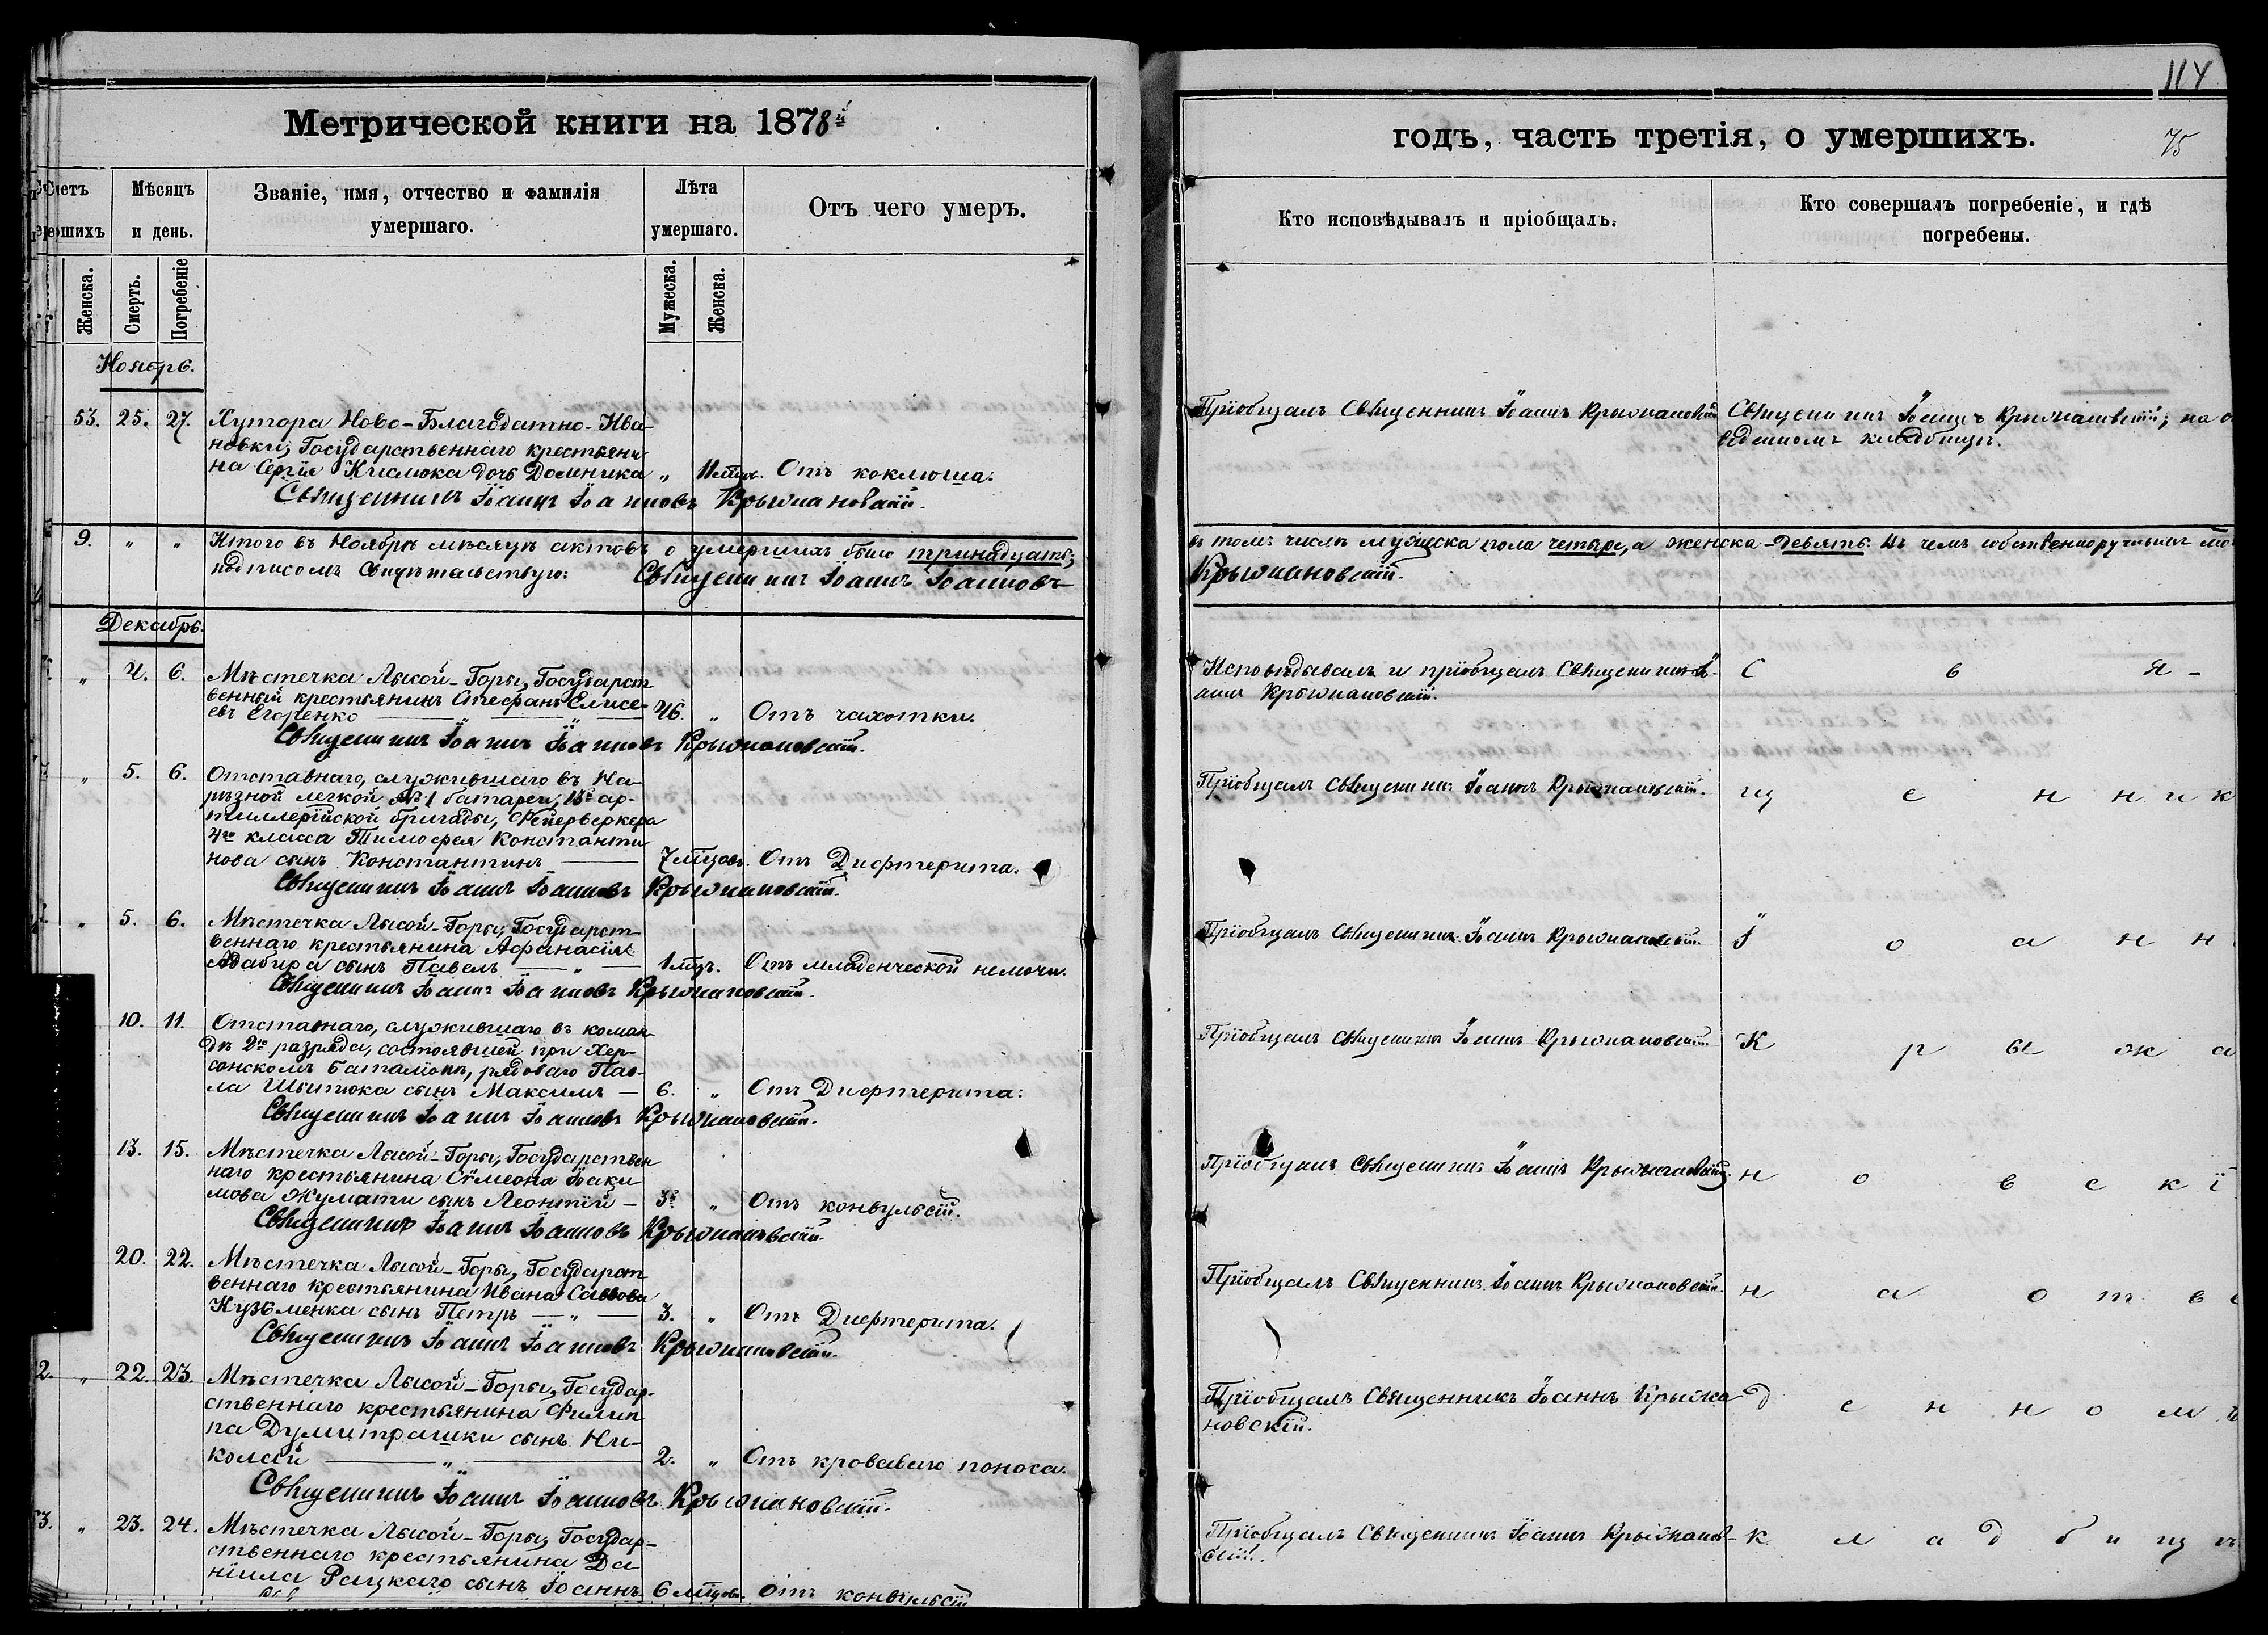 Метрической книги на 1878й
Счетъ
Мѣсяцъ и день.
Званіе, имя, отчество и фамилія умершаго.
Лѣта умершаго.
Отъ чего умеръ.
Женска.
Смерть.
Погребеніе
Мужеска.
Женска.
Ноябрь.
53. 25. 27. Хутора Ново-Благодатно-Ива-
новки, Государственнаго крестьяни-
на Сергія Кислюка дочь Домника „ 11 мѣц. Отъ коклюша.
Священникъ Іоаннъ Іоанновъ Крыжановскій.
9. „ „ Итого въ Ноябрѣ мѣсяцѣ актовъ о умершихъ было тринадцать;
подписомъ свидѣтельствую: Священникъ Іоаннъ Іоанновъ
Декабрь.
„ 4. 6. Мѣстечка Лысой-Горы, Государст
венный крестьянинъ Стефанъ Елисе-
евъ Егоренко — „ — „ — 46. „ Отъ чахотки.
Священникъ Іоаннъ Іоанновъ Крыжановскій.
„ 5. 6. Отставнаго, служившаго въ На-
рѣзной легкой № 1 батареи, 13й ар-
тиллерійской бригады, Фейерверкера
4го класса Тимофея Константи
нова сынъ Константинъ — 7 мѣцовъ. Отъ Дифтерита.
Священникъ Іоаннъ Іоанновъ Крыжановскій.
„ 5. 6. Мѣстечка Лысой-Горы, Государст-
веннаго крестьянина Афанасія
сынъ Павелъ — „ — 1 мѣц. Отъ младенческой немочи.
Священникъ Іоаннъ Іоанновъ Крыжановскій.
10. 11. Отставнаго, служившаго въ коман
дѣ 2го разряда, состоявшей при Хер-
сонскомъ баталіонѣ, рядоваго Пав-
ла Шпитюка сынъ Максимъ — 6. „ Отъ Дифтерита.
Священникъ Іоаннъ Іоанновъ Крыжановскій.
13. 15. Мѣстечка Лысой-Горы, Государствен
наго крестьянина Сѵмеона Іоаки
мова Жумати сынъ Леонтій — 3. „ Отъ конвульсій.
Священникъ Іоаннъ Іоанновъ Крыжановскій.
20. 22. Мѣстечка Лысой-Горы, Государст
веннаго крестьянина Ивана Саввова
Кузьменка сынъ Петръ — „ — 3. „ Отъ Дифтерита.
Священникъ Іоаннъ Іоанновъ Крыжановскій.
2. „ 22. 23. Мѣстечка Лысой-Горы, Государ-
ственнаго крестьянина Филип
па Думитрашки сынъ Ни-
колай — „ — 2. „ Отъ кроваваго поноса.
Священникъ Іоаннъ Іоанновъ Крыжановскій.
3. „ 23. 24. Мѣстечка Лысой-Горы, Государ-
ственнаго крестьянина Да
ніила Рацкаго сынъ Іоаннъ 6 мѣцовъ. Отъ конвульсій
114
годъ, часть третія, о умершихъ.
75
Кто исповѣдывалъ и пріобщалъ.
Кто совершалъ погребеніе, и гдѣ погребены.
Пріобщалъ Священникъ Іоаннъ Крыжановскій
Священникъ Іоаннъ Крыжановскій; на о
веденномъ кладбищѣ.
въ томъ числѣ мужеска пола четыре, а женска-девять. Въ чемъ собственноручнымъ мо
Крыжановскій.
Исповѣдывалъ и пріобщалъ Священникъ Іо-
аннъ Крыжановскій.
С в я -
Пріобщалъ Священникъ Іоаннъ Крыжановскій.
щ е н н и к
Пріобщалъ Священникъ Іоаннъ Крыжановскій.
І о а н н
Пріобщалъ Священникъ Іоаннъ Крыжановскій
К р ы ж а
Пріобщалъ Священникъ Іоаннъ Крыжановскій.
н о в с к і
Пріобщалъ Священникъ Іоаннъ Крыжановскій.
н а о т в е
Пріобщалъ Священникъ Іоаннъ Крыжа
новскій.
д е н н о м ъ
Пріобщалъ Священникъ Іоаннъ Крыжанов-
скій.
к л а д б и щ ѣ